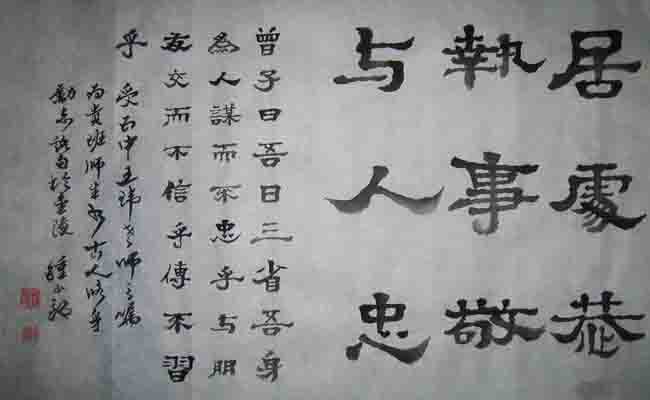 居處恭
執事敬
与人忠
曾子曰吾日三省吾身
為人謀而不忠乎与朋
友交而不信乎傳不習
乎 受中王瑋老師之囑
為貴班師生古人修身
勵志語句於